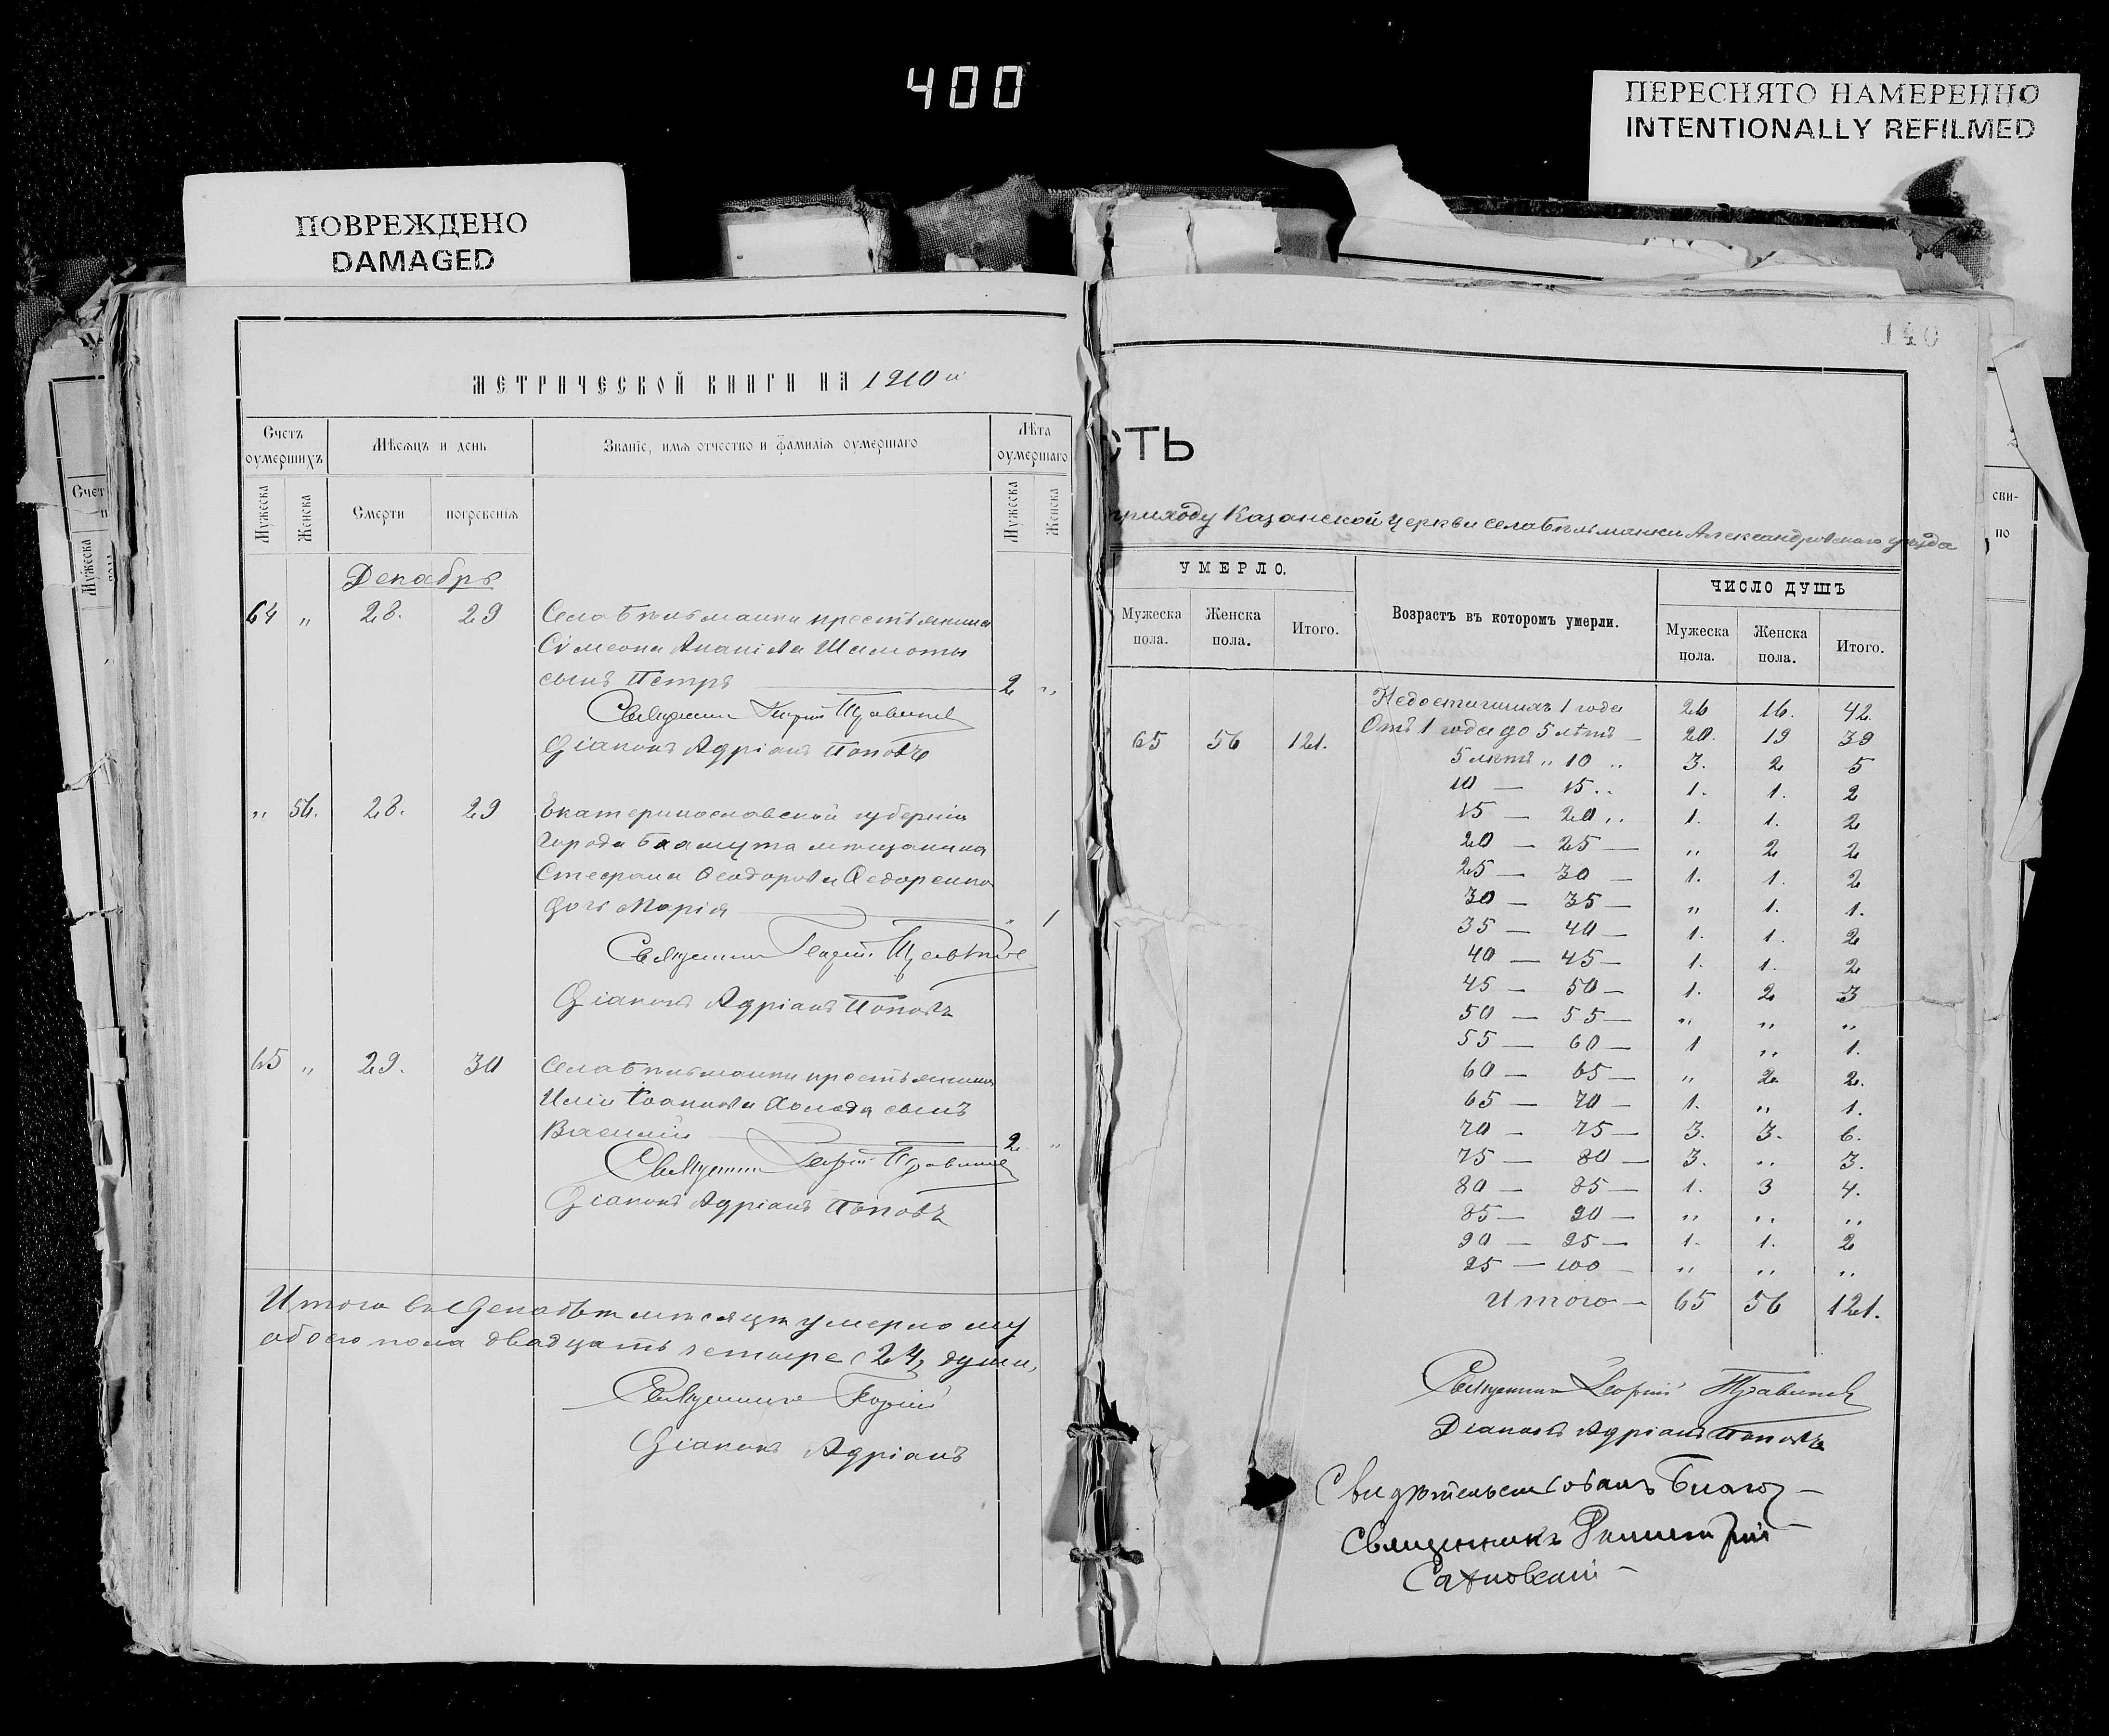 400
ПЕРЕСНЯТО НАМЕРЕННО
INTENTIONALLY REFILMED
ПОВРЕЖДЕНО
DAMAGED
МЕТРИЧЕСКОЙ КНИГИ НА 1910 й
Счетъ оумершихъ
Мѣсяцъ и день
Званіе, имя отчество и фамилія оумершаго
Лѣта оумершаго
Мужеска
Женска
Смерти
погребенія
Мужеска
Женска
Декабрь
64 „ 28. 29 Села Письманки крестьянина
Сѵмеона Ананіева Шаматы
сынъ Петръ 2 „
Священникъ Георгій
Діаконъ Адріанъ Поповъ
„ 56. 28. 29 Екатеринославской губерніи
города Бахмута мѣщанина
Стефана Ѳеодорова Ѳедоренко
дочь Марія „ 1
Священникъ Георгій
Діаконъ Адріанъ Поповъ
65 „ 29. 30 крестьянина
Иліи Іоаннова сынъ
Василій 2 „
Священникъ Георгій
Діаконъ Адріанъ Поповъ
Итого въ Декабрѣ мѣсяцѣ умерло
обоего пола двадцать четыре (24) души,
Священникъ Георгій
Діаконъ Адріанъ
140
СТЬ
приходу Казанской церкви села Александровскаго уѣзда
УМЕРЛО.
Возрастъ въ которомъ умерли.
ЧИСЛО ДУШЪ
Мужеска пола.
Женска пола.
Итого.
Мужеска пола.
Женска пола.
Итого.
65 56 121.
Недостигшихъ 1 года 26 16. 42.
Отъ 1 года до 5 лѣтъ — 20. 19 39
5 лѣтъ „ 10 „ 3. 2 5
10 — 15 „ 1. 1. 2
15 — 20 „ 1. 1. 2
20 — 25 — „ 2 2
25 — 30 — 1. 1. 2
30 — 35 — „ 1. 1.
35 — 40 — 1. 1. 2
40 — 45 — 1. 1. 2
45 — 50 — 1. 2 3
50 — 55 — „ „ „
55 — 60 — 1 „ 1.
60 — 65 — „ 2 2.
65 — 70 — 1. „ 1.
70 — 75 — 3. 3. 6.
75 — 80 — 3. „ 3.
80 — 85 — 1. 3 4.
85 — 90 — „ „ „
90 — 95 — 1. 1. 2
95 — 100 — „ „ „
Итого — 65 56 121.
Священникъ Георгій
Діаконъ Адріанъ Поповъ
Свидѣтельствовалъ Благоч —
Священникъ Димитрій
Счет
Мужеска
сви-
по